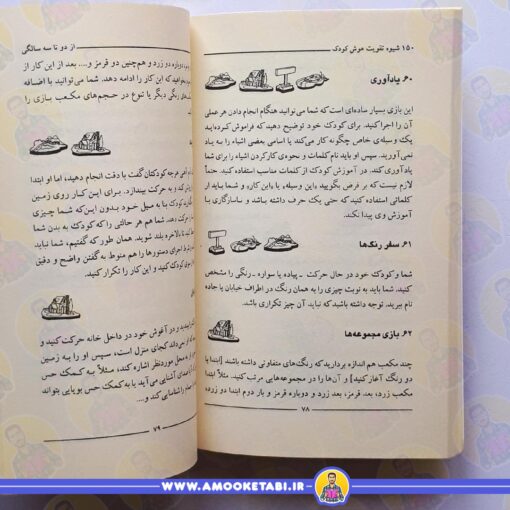 ۱۵۰ شیوه تقویت هوش کودک
۶۰. یادآوری
این بازی بسیار ساده‌ای است که شما می‌توانید هنگام انجام دادن هر عملی
آن را اجرا کنید. برای کودک خود توضیح دهید که فراموش کرده‌اید
یک وسیله‌ی خاص چگونه کار می‌کند یا اسامی بعضی اشیاء را به یاد
نمی‌آورید. سپس او باید نام کلمات و نحوه‌ی کار کردن اشیاء را برای شما
یادآوری کند. در آموزش کودک از کلمات مناسب استفاده کنید. حتماً
لازم نیست که بر فرض بگویید «با این وسیله»، یا «با این کار»، و شما باید از
کلماتی استفاده کنید که حتی یک حرف داشته باشد و ناسازگاری با
آموزش وی پیدا نکند.
۶۱. سفر رنگ‌ها
شما و کودک خود در حال حرکت ـ پیاده یا سواره ـ رنگی را مشخص
کنید. شما باید به نوبت چیزی را به همان رنگ در اطراف خیابان یا جاده
نام ببرید. توجه داشته باشید که نباید آن چیز تکراری باشد.
۶۲. بازی مجموعه‌ها
چند مکعب هم اندازه بردارید که رنگ‌های متفاوتی داشته باشند [ابتدا با
دو رنگ آغاز کنید] و آن‌ها را در مجموعه‌هایی مرتب کنید. مثلاً یک
مکعب زرد، بعد قرمز، بعد زرد و دوباره قرمز و بار دوم ابتدا دو زرد،
۷۸
از دو تا سه سالگی
دوباره دو زرد و هم‌چنین دو قرمز و.... بعد از این کار از
بخواهید که این کار را ادامه دهد. شما می‌توانید با اضافه
رنگی دیگر یا تنوع در حجم‌های مکعب بازی را
هر چه کودکتان گفت با دقت انجام دهید، اما او ابتدا
به حرکت بیندازد. برای این کار روی زمین
کودک تا به میل خود بدون این‌که شما چیزی
شما هم هر حالتی را که کودک به بدن شما
بالاخره بلند شوید. همان طور که گفتیم، شما باید
شرط اجرای دستورها را هم منوط به گفتن واضح و دقیق
کودک کنید و این کار را تکرار کنید.
و در آغوش خود در داخل خانه حرکت کنید و
کجای منزل است، سپس او را به زمین
محل موردنظر اشاره کند، مثلاً به کمک حس
صدای آشنایی می‌آید یا به کمک حس بویایی بتواند
را شناسایی کند و....
۷۹
WWW.AMOOKETABI.IR